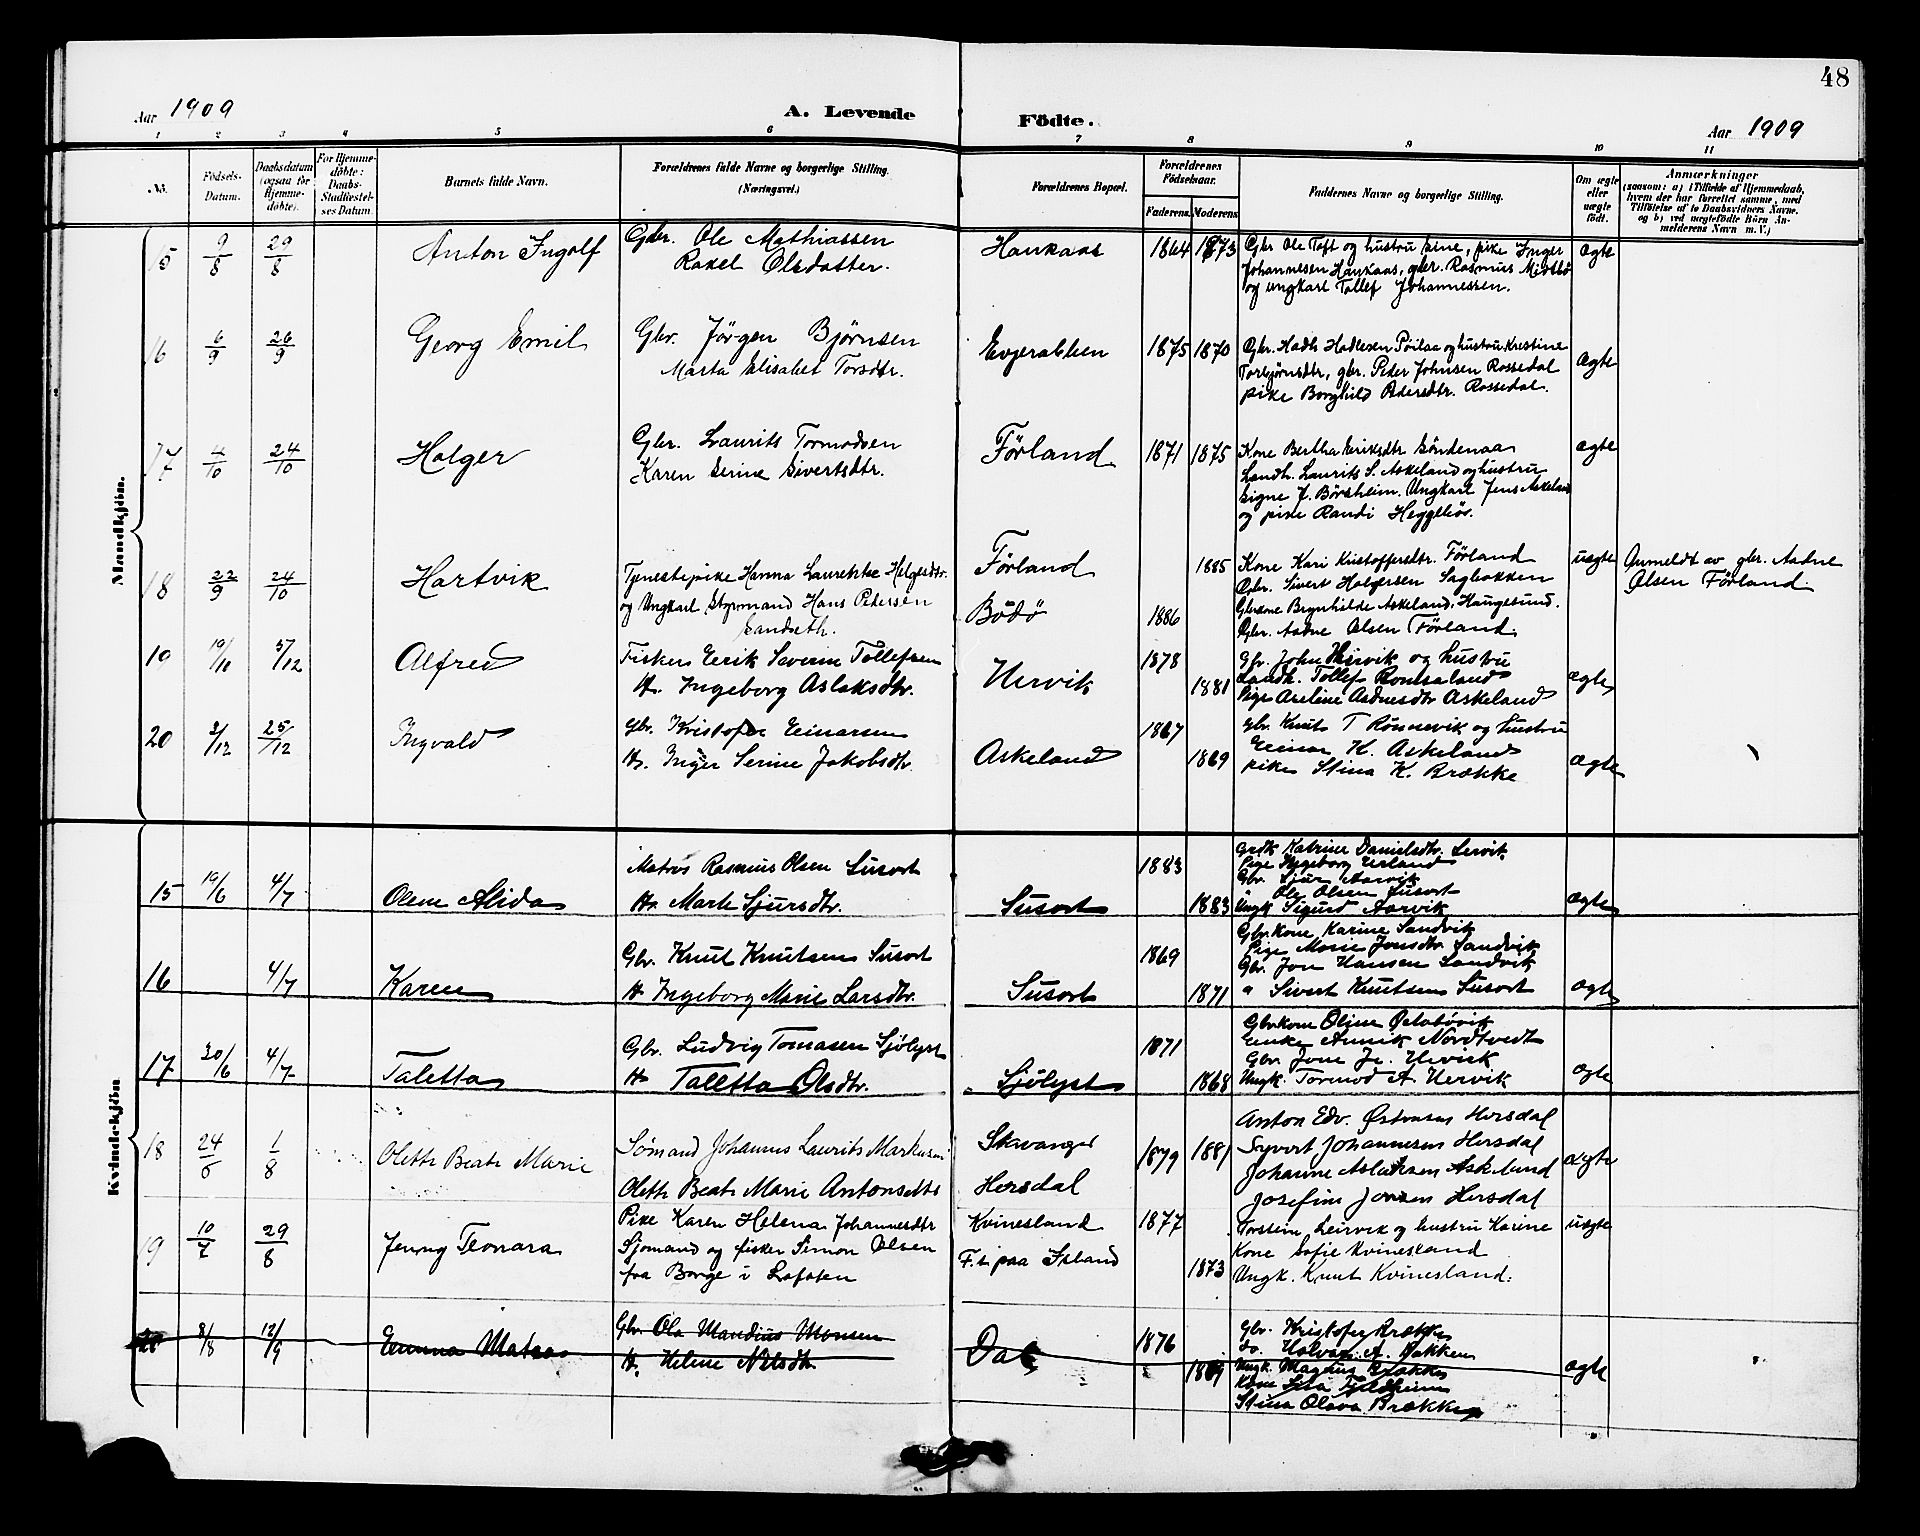 48
Aar 1909 A. Levende Födte. Aar 1909
1 2 3 4 5 6 7 8 9 10 11
No. Födsels-Datum. Daabsdatum (ogsaa for Hjemme-döbte). For Hjemme-döbte: Daabs-Stadfæstel-ses Datum. Barnets fulde Navn. Forældrenes fulde Navne og borgerlige Stilling. (Næringsvei.) Forældrenes Bopæl. Forældrenes Födselsaar. Faderens. Moderens. Faddernes Navne og borgerlige Stilling. Om ægte eller uægte födt. Anmærkninger
(saasom: a) i Tilfælde af Hjemmedaab,
hvem der har forrettet samme, med
Tilföielse af to Daabsvidners Navne.
og b) ved uægtefödte Börn An-
melderens Navn m. V.)
Mandkjön.
15 9/8 29/8 Anton Ingolf Gbr. Ole Mathiassen Haukaas 1864 1873 Gbr Ole Toft og hustru, pike Inger ægte
Rakel Olsdatter. Johannesen Haukaas, gbr. Rasmus
og ungkarl Tollef Johannessen.
16 6/9 26/9 Georg Emil Gbr. Jörgen Bjørnsen 1875 1870 Gbr. Hadle Hadlesen og hustru Kristine ægte
Marta Elisabet Torsdtr. Torbjørnsdtr, gbr. Peder Johnsen Rossedal
pike Borghild Pedersdtr. Rossedal.
17 4/10 24/10 Holger Gbr. Laurits Tormodsen Förland 1871 1875 Kone Bertha Eriksdtr ægte
Karen Serine Sivertsdtr. Landh. Laurits S. Askeland og hustru
Signe J. Börsheim. Ungkarl Jens Askeland
og pike Randi
18 22/9 24/10 Hartvik Tjenestepike Hanna Laurentse Helgesdtr. Förland 1885 Kone Kari Kristoffersdtr. Förland uægte Anmeldt av gbr. Aadne
og Ungkarl Styrmand Hans Pedersen Bodö 1886 Gbr. Sivert Holgersen Sagbakken Olsen Förland.
Sandseth. Gbrkone Brynhilde Askeland, Haugesund.
Gbr. Aadne Olsen Förland.
19 19/10 5/12 Alfred Fisker Eerik Severin Tollefsen Hervik 1878 Gbr. John Hervik og hustru
H. Ingeborg Aslaksdtr. 1881 Landh. Tollef Romsaland ægte
Pige Aseline Aadnesdtr Askeland
20 2/12 25/12 Ingvald Gbr. Kristofer Einarsen Askeland 1867 Gbr. Knut T Rønnevik og hustru
H. Inger Serine Jakobsdtr 1869 Einar K. Askeland ægte
pike Stina K. Brække
Kvindekjön
15 19/6 4/7 Olene Alida Matros Rasmus Olsen Susort Susort 1883 Katrine Danielsdtr. Lervik
H. Marte Sjursdtr. 1883 Pige Ingeborg
Gbr. Sjur Aarvik
" Ole Olsen Susort
Ungk Sigurd Aarvik ægte
16 4/7 Karen Gbr. Knut Knutsen Susort Susort 1869 Gbr.kone Karine Sandvik
H Ingeborg Marie Larsdtr. 1871 Pige Marie Jonsdtr Sandvik
Gbr. Jon Hansen Sandvik
" Sivert Knutsen Susort ægte
17 20/6 4/7 Taletta Gbr. Ludvig Tomasen Sjölyst Sjölyst 1871 Gbrkone Oline
H Talletta Olsdtr. 1868 Enke Annik Nordtvedt
Gbr. Jone Hervik
Ungk. Tormod A Hervik ægte
18 24/6 1/8 Olette Beate Marie Sømand Johannes Laurits Markusen Stavanger 1879 1881 Anton Edv. Hersdal
Olette Beate Marie Antonsdtr Hersdal Syvert Johannesen Hersdal ægte
Johanne Aslaksen Askeland
Josefine Jonsen Hersdal
19 10/7 29/8 Jenny Leonara Pike Karen Helena Johannesdtr Kvinesland 1877 Torstein Leirvik og hustru Karine uægte
Sjømand og fisker Simon Olsen F.t. paa Island 1873 Kone Sofie Kvinesland
fra Borge i Lofoten Ungk. Knut Kvinesland.
20 8/8 12/9 Emma Gbr. Ola Mandius Monsen Dal 1876 Gbr. Kristofer Brække
H. Helene Nilsdtr 1869 Do. Halvor A. Bakken
Ungk. Magnus Brække ægte
Kone
Stina Olava Brække